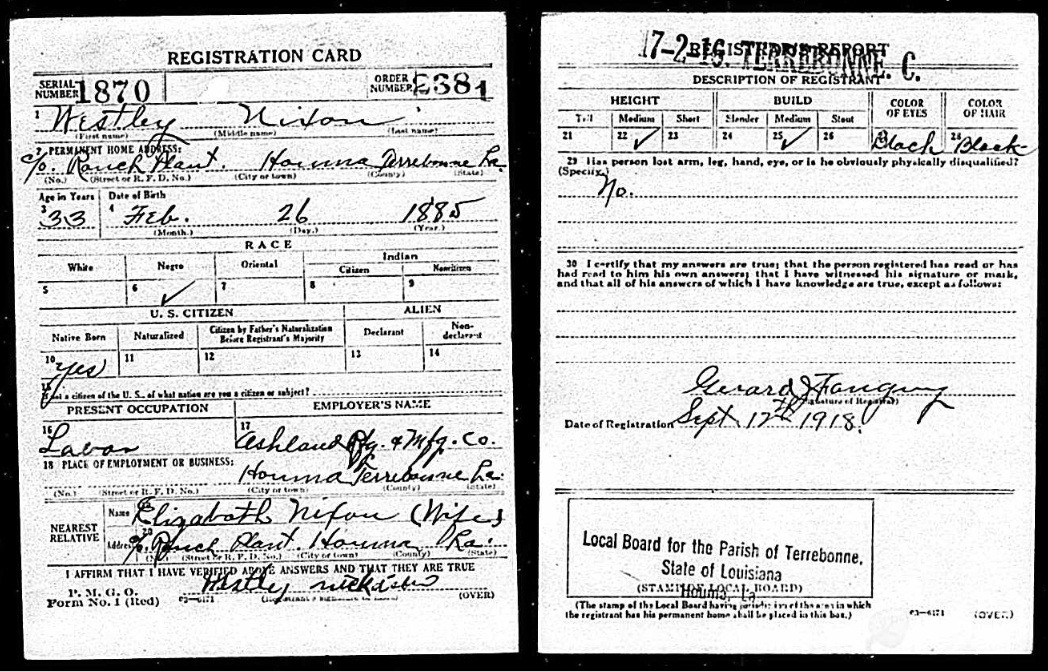 REGISTRATION CARD
SERIAL NUMBER 1870 ORDER NUMBER 2381
1 Westley Nixon
(First name) (Middle name) (Last name)
2 PERMANENT HOME ADDRESS:
c/o Ranch Plant. Houma Terrebonne La
(No.) (Street or R. F. D. No.) (City or town) (County) (State)
Age in Years Date of Birth
3 33 4 Feb. 26 1885
(Month.) (Day.) (Year.)
RACE
White Negro Oriental Indian
Citizen Noncitizen
5 6 ✓ 7 8 9
U. S. CITIZEN ALIEN
Native Born Naturalized Citizen by Father's Naturalization Before Registrant's Majority Declarant Non-declarant
10 yes 11 12 13 14
15 If not a citizen of the U. S., of what nation are you a citizen or subject?
PRESENT OCCUPATION EMPLOYER'S NAME
16 Labor 17 Ashland Pfg. & Mfg. Co.
18 PLACE OF EMPLOYMENT OR BUSINESS:
Houma Terrebonne La.
(No.) (Street or R. F. D. No.) (City or town) (County) (State)
NEAREST RELATIVE
Name 19 Elizabath Nixon (Wife)
Address 20 c/o Ranch Plant Houma La.
(No.) (Street or R. F. D. No.) (City or town) (County) (State)
I AFFIRM THAT I HAVE VERIFIED ABOVE ANSWERS AND THAT THEY ARE TRUE
P. M. G. O.
Form No. 1 (Red) 03—6171 Westley (OVER)
17-2-16. TERREBONNE. C.
REGISTRAR'S REPORT
DESCRIPTION OF REGISTRANT
HEIGHT BUILD COLOR OF EYES COLOR OF HAIR
Tall Medium Short Slender Medium Stout
21 22 ✓ 23 24 25 ✓ 26 27 Black 28 Black
29 Has person lost arm, leg, hand, eye, or is he obviously physically disqualified?
(Specify.) No.
30 I certify that my answers are true; that the person registered has read or has
had read to him his own answers; that I have witnessed his signature or mark,
and that all of his answers of which I have knowledge are true, except as follows:
Gerard J Fanguy
(Signature of Registrar)
Date of Registration Sept 12th 1918
Local Board for the Parish of Terrebonne,
State of Louisiana
(STAMP OF LOCAL BOARD)
Houma, La
(The stamp of the Local Board having jurisdiction of the area in which
the registrant has his permanent home shall be placed in this box.)
03—6171 (OVER)